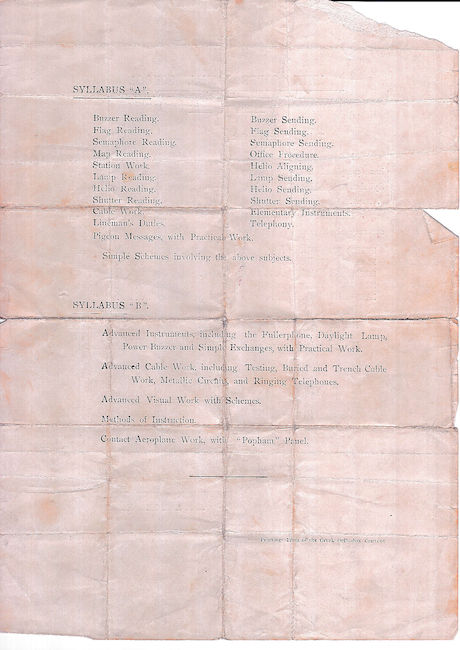 SYLLABUS "A".
Buzzer Reading.
Flag Reading.
Semaphore Reading.
Map Reading.
Station Work.
Lamp Reading.
Helio Reading.
Shutter Reading.
Cable Work.
Lineman's Duties.
Buzzer Sending.
Flag Sending.
Semaphore Sending.
Office Procedure.
Helio Aligning.
Lamp Sending.
Helio Sending.
Shutter Sending.
Elementary Instruments.
Telephony.
Pigeon Messages, with Practical Work.
Simple Schemes involving the above subjects.
SYLLABUS "B".
Advanced Instruments, including the Fullerphone, Daylight Lamp,
Power Buzzer and Simple Exchanges, with Practical Work.
Advanced Cable Work, including Testing, Buried and Trench Cable
Work, Metallic Circuits, and Ringing Telephones.
Advanced Visual Work with Schemes.
Methods of Instruction.
Contact Aeroplane Work, with "Popham" Panel.
Printing Press of the Greek Orthodox Convent